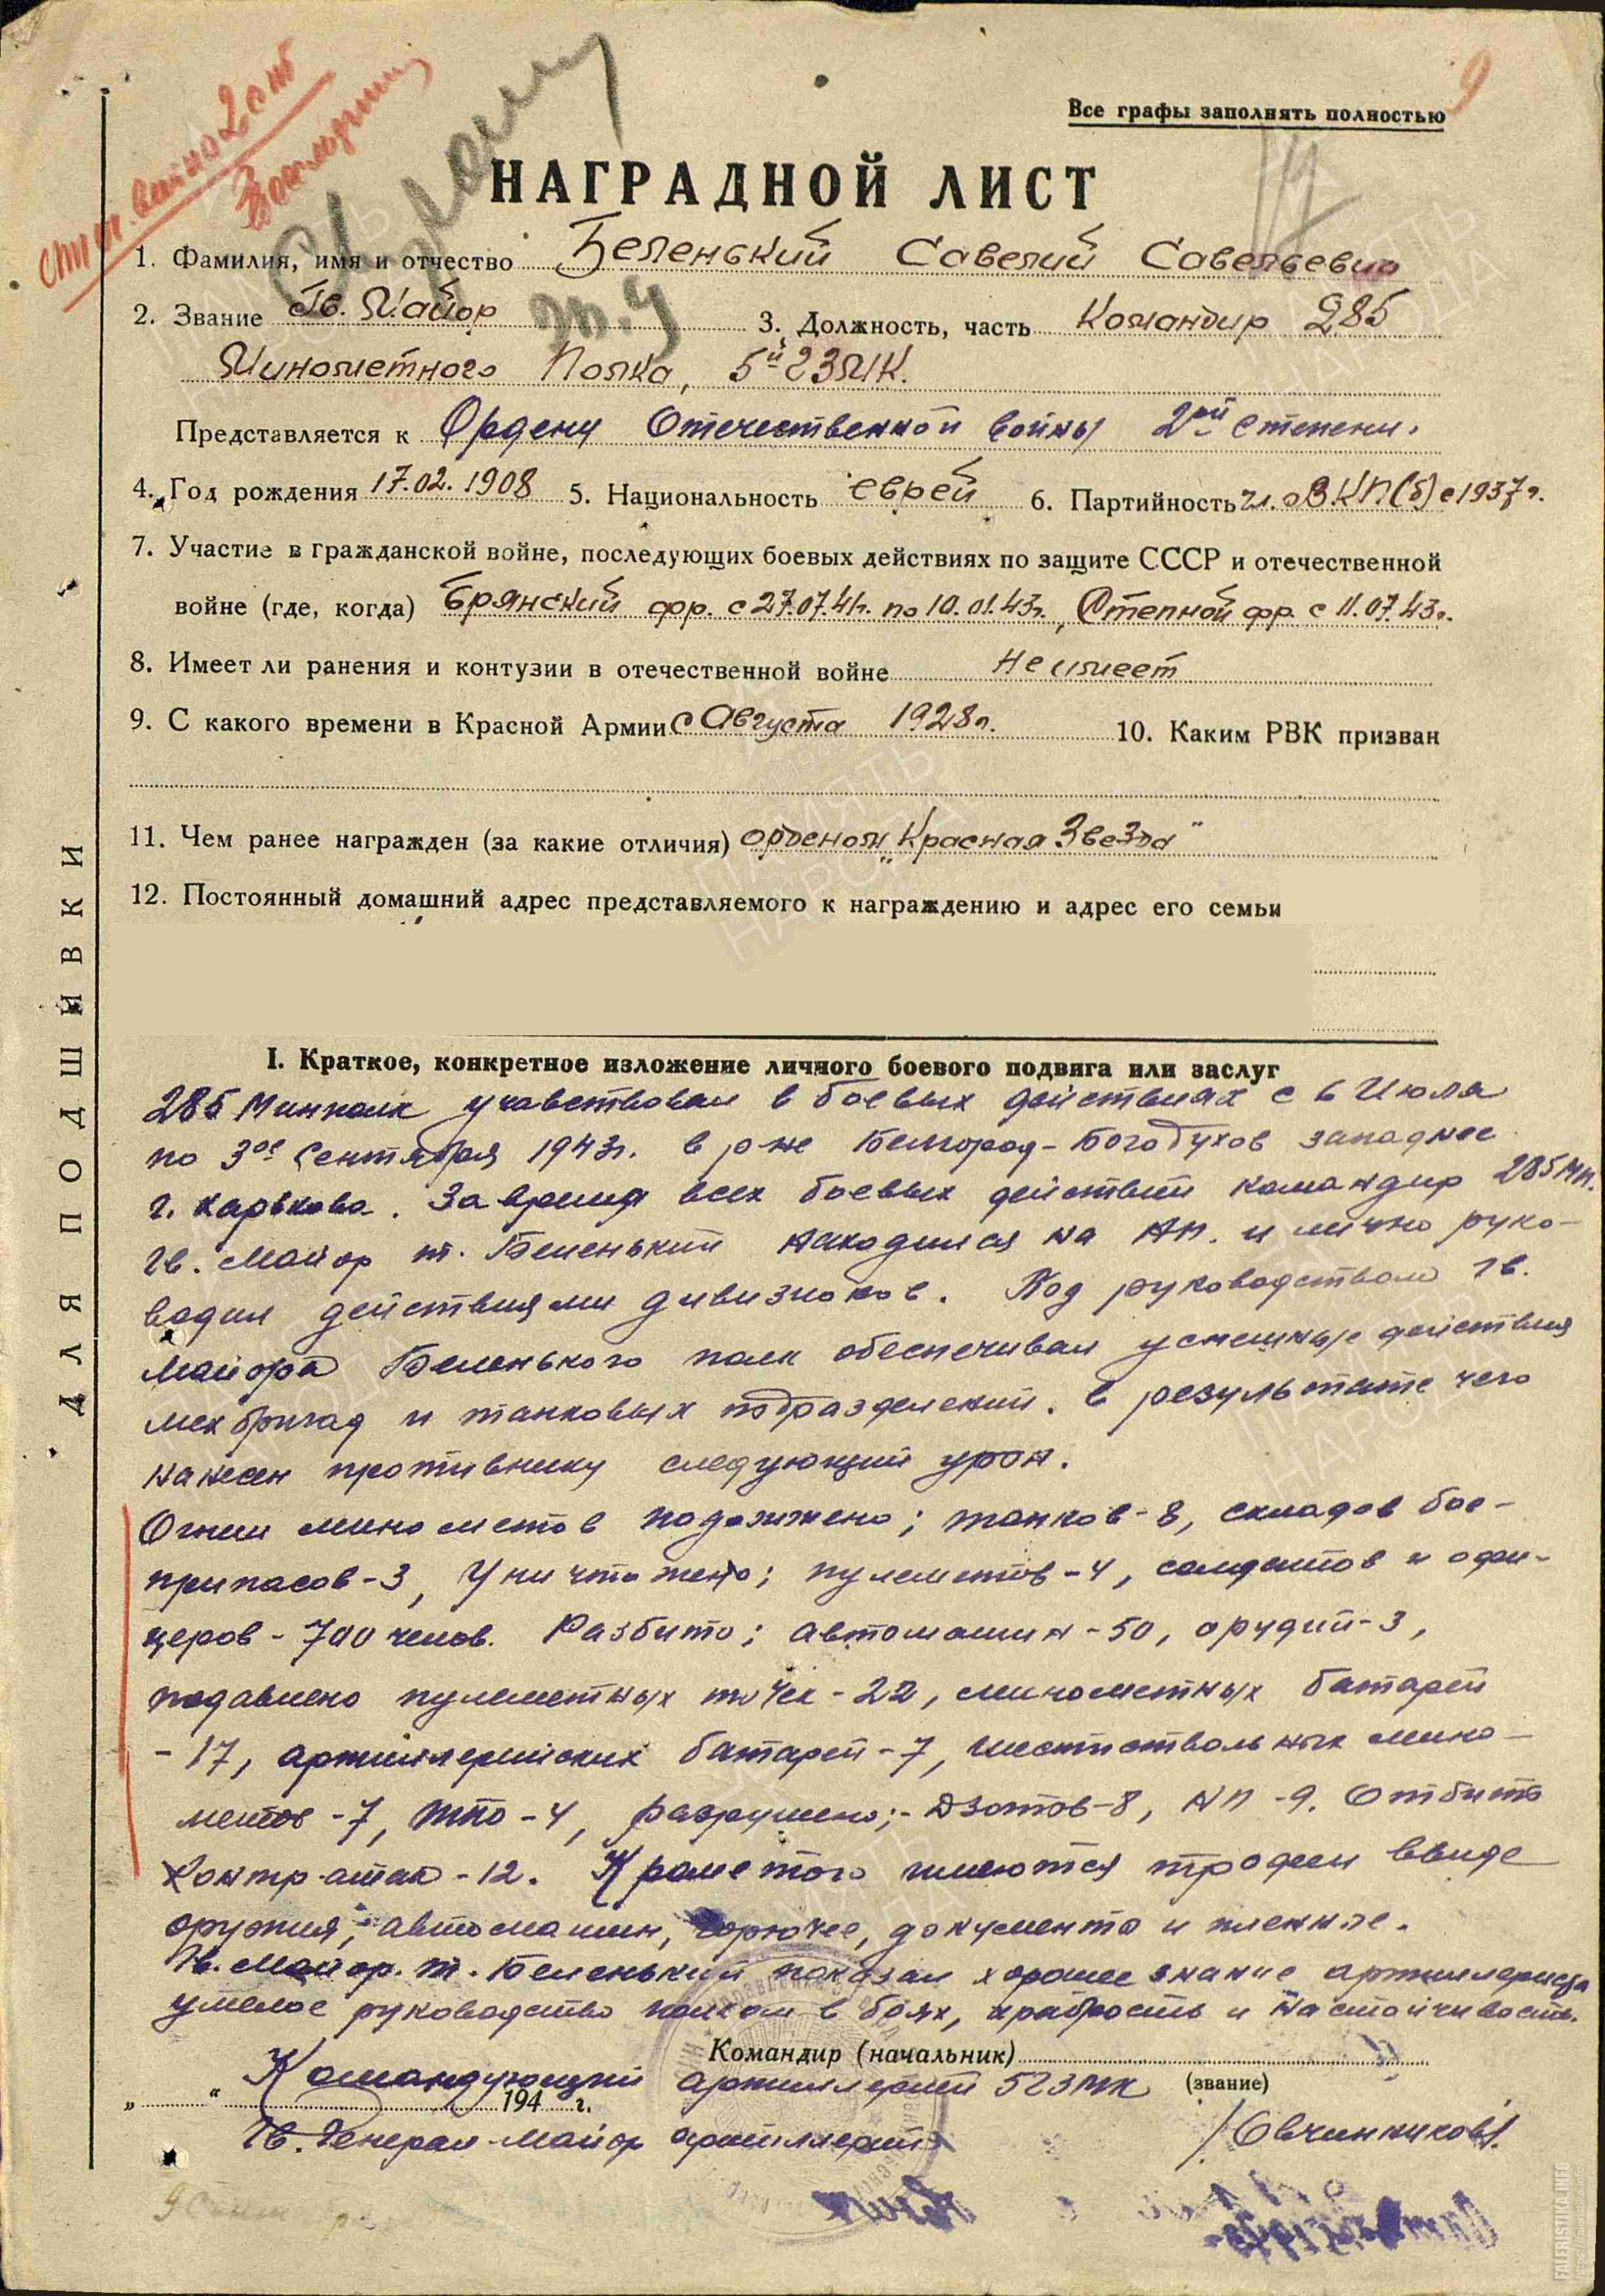 Все графы заполнять полностью
9
НАГРАДНОЙ ЛИСТ
1. Фамилия, имя и отчество Беленький Савелий Савельевич
2. Звание Гв. Майор 3. Должность, часть Командир 285
Минометного Полка, 5й ГЗМК.
Представляется к Ордену Отечественной войны 2ой степени.
4. Год рождения 17.02.1908 5. Национальность еврей 6. Партийность чл. ВКП(б) с 1937г.
7. Участие в гражданской войне, последующих боевых действиях по защите СССР и отечественной
войне (где, когда) Брянский фр. с 27.07.41г. по 10.01.43г., Степной фр. с 11.07.43г.
8. Имеет ли ранения и контузии в отечественной войне не имеет
9. С какого времени в Красной Армии с Августа 1928г. 10. Каким РВК призван
11. Чем ранее награжден (за какие отличия) орденом „Красная Звезда"
12. Постоянный домашний адрес представляемого к награждению и адрес его семьи
ДЛЯ ПОДШИВКИ
I. Краткое, конкретное изложение личного боевого подвига или заслуг
285 Минполк участвовал в боевых действиях с 6 Июля
по 3ое Сентября 1943г. в р-не Белгород-Богодухов западнее
г. Харькова. За время всех боевых действий командир 285 мп.
гв. майор т. Беленький находился на НП. и лично руко-
водил действиями дивизионов. Под руководством гв.
майора Беленького полк обеспечивал успешные действия
мехбригад и танковых подразделений. В результате чего
нанесен противнику следующий урон.
Огнем минометов подожжено; танков-8, складов бое-
припасов-3, Уничтожено; пулеметов-4, солдатов и офи-
церов-700 челов. Разбито; автомашин-50, орудий-3,
подавлено пулеметных точек-22, минометных батарей
-17, артиллерийских батарей-7, шестиствольных мино-
метов-7, ПТО-4, разрушено;-Дзотов-8, НП-9. Отбито
контр-атак-12. Кроме того имеются трофеи ввиде
оружия, автомашин, горючее, документа и пленные.
Гв. Майор. т. Беленький показал хорошее знание артиллериста
умелое руководство полком в боях, храбрость и настойчивость.
Командир (начальник)
Командующий артиллерией 5 ГЗМК (звание)
„ " 194 г.
Гв. Генерал-майор артиллерии /Овчинников/.
9 Сентября
FALERISTIKA.INFO